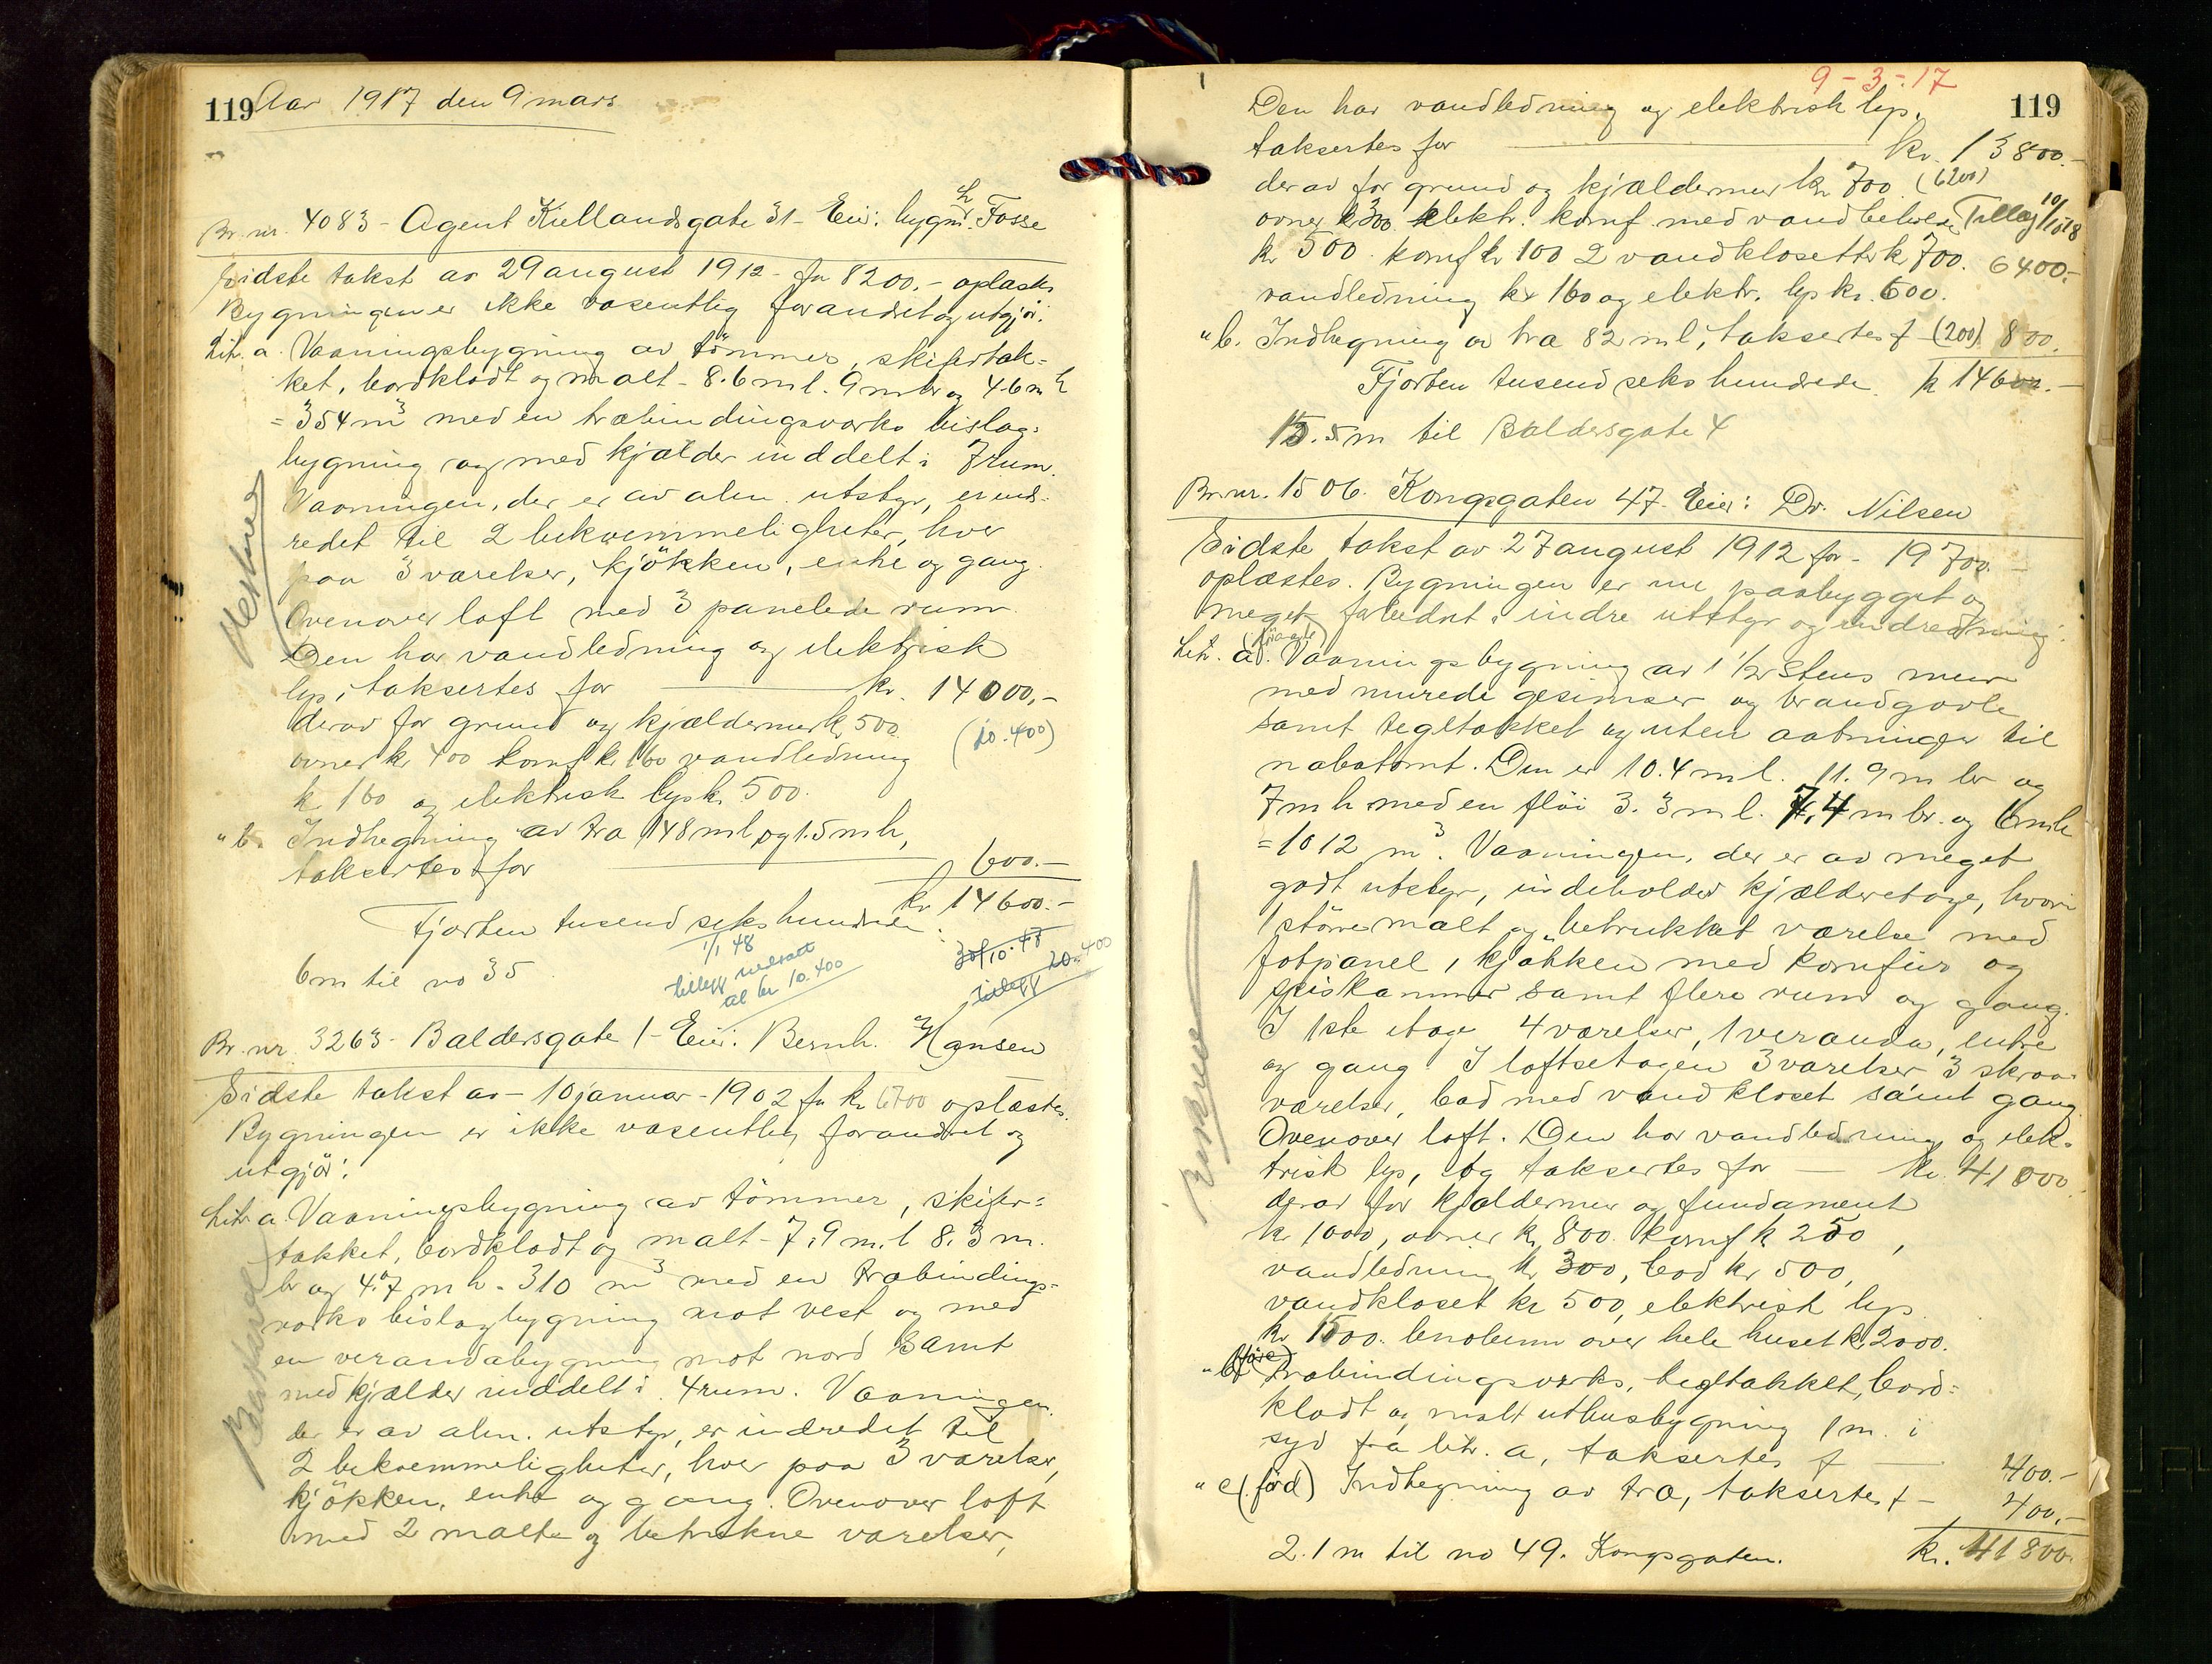 119 Aar 1917 den 9 mars
Br. nr. 4083 - Agent Kiellandsgate 31 - Eier: bygm. H. Fosse
Sidste takst av 29 august 1912 - fr 8200.- oplæstes
Bygningen er ikke væsentlig forandret og utgjör:
Litr. a. Vaaningsbygning av tömmer, skifertæk-
ket, bordklædt og malt - 8.6 m l. 9 m br og 4.6 m h
= 354 m3 med en træbindingsværks bislag-
bygning og med kjælder inddelt i 7 rum.
Vaaningen, der er av alm. utstyr, er ind-
redet til 2 bekvemmeligheter, hver
paa 3 værelser, kjökken, entre og gang.
Ovenover loft med 3 panelede rum.
Den har vandledning og elektrisk
lys, taksertes for kr. 14000,-
derav for grund og kjældermur kr 500.
(10.400)
ovner kr 400 komf kr 160 vandledning
kr 160 og elektrisk lys kr. 500.
" b. Indhegning av træ 148 m l og 1.5 m h,
taksertes for 600.-
kr 14600.-
Fjorten tusend seks hundrede.
6 m til no 35
1/1 48
tillegg nedsatt
al kr 10.400
30/10.47
tillegg 20.400
Br. nr. 3263 - Baldersgate 1 - Eier: Bernh. Hansen
Sidste takst av - 10 januar - 1902 fr kr 6700 oplæstes.
Bygningen er ikke væsentlig forandret og
utgjör:
Litr a. Vaaningsbygning av tömmer, skifer-
tækket, bordklædt og malt - 7.9 m. l 8.3 m.
br og 4.7 m h = 310 m3 med en træbindings-
værks bislagbygning mot vest og med
en verandabygning mot nord samt
med kjælder inddelt i 4 rum. Vaaningen
der er av alm. utstyr, er indredet til
2 bekvemmeligheter, hver paa 3 værelser,
kjökken, entre og gang. Ovenover loft
med 2 malte og betrukne værelser,
9-3-17
119
Den har vandledning og elektrisk lys.
taksertes for kr. 13800.-
derav for grund og kjældermur kr 700 (6200)
ovner kr 300. elektr. komf. med vandbeholder Tillæg 10/10 18
kr 500 komf kr 100 2 vandklosetter kr 700. 6400.-
vandledning kr 160 og elektr. lys kr. 600.
" b. Indhegning av træ 82 m l, taksertes f (200) 800.
Fjorten tusend seks hundrede. kr 14600.-
15.5 m til Baldersgate 4
Br. nr. 1506. Kongsgaten 47. Eier: Dr. Nilsen
Sidste takst av 27 august 1912 for - 19700.-
oplæstes. Bygningen er nu paabygget og
meget forbedret i indre utstyr og indredning:
Litr. a. Vaaningsbygning av 1 1/2 Stens mur
med murede gesimser og brandgavle
samt tegltækket og uten aabninger til
nabotomt. Den er 10.4 m l. 11.9 m br og
7 m h med en flöi 3.3 m l. 7.4 m br. og 6 m h
= 1012 m3. Vaaningen, der er av meget
godt utstyr, indeholder kjælderetage, hvori
1 större malt og betrukket værelse med
fotpanel, kjökken med komfur og
spiskammer samt flere rum og gang.
I 1ste etage 4 værelser, 1 veranda, entre
og gang. I loftsetagen 3 værelser 3 skraa-
værelser, bad med vandkloset samt gang.
Ovenover loft. Den har vandledning og elek-
trisk lys, og taksertes for kr. 41000
derav for kjældermur og fundament
kr 1000, ovner kr. 800. komf kr 250,
vandledning kr 300, bad kr 500,
vandkloset kr 500, elektrisk lys
kr 1500. linoleum over hele huset kr 2000.
" b (för c) Træbindingsverks, tegltækket, bord-
klædt og malt uthusbygning 1 m. i
syd fra litr. a, taksertes f 400.-
" c (för d) Indhegning av træ, taksertes f - 400.-
2.1 m til no 49. Kongsgaten. kr. 41800.